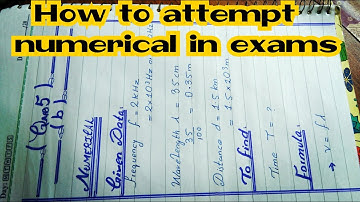 How to attempt
numerical in exams
(Ques5)
(b)
Numerical
Given Data:
Frequency f = 2kHz
= 2x10³Hz
Wavelength λ = 35cm
35/100 = 0.35m
Distance d = 1.5km
= 1.5x10³m
To find:
Time T = ?
Formula:
→ v = fλ